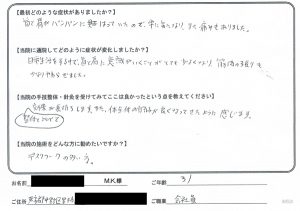 【最初どのような症状がありましたか？】
首と肩がパンパンに張っていたので、常に気になり、また痛みもありました。
【当院に通院してどのように症状が変化しましたか？】
日時が経過するにつれ首と肩に
かなりやわらぎました。
【当院の手技整体・針灸を受けてみてここは良かったという点を教えてください】
効果が長持ちします。また、体全体の調子が良くなってきたように感じます。
整体について
【当院の施術をどんな方に勧めたいですか？】
デスクワークの多い方。
お名前 M.K様 ご年齢 31
ご住所 ご職業 会社員